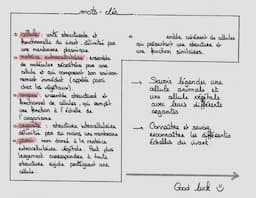 mots-clés
cellule : unité structurale et
fonctionnelle du vivant, délimitée par
une membrane plasmique.
matrice extracellulaire : ensemble
de molécules sécrétées par une
cellule et qui composent son environ-
nement immédiat (appelée paroi
chez les végétaux).
organe : ensemble structurel et
fonctionnel de cellules, qui remplit
une fonction à l'échelle de
l'organisme.
organite : structure intracellulaire
délimitée par au moins une membrane
paroi : nom donné à la matrice
extracellulaire végétale. Peut plus
largement correspondre à toute
structure rigide protégeant une
cellule.
: ensemble cohérent de cellules
qui présentent une structure et
une fonction similaires.
→ Savoir légender une
cellule animale et
une cellule végétale
avec leurs différents
organites
→ Connaître et savoir
reconnaître les différentes
échelles du vivant
Good luck